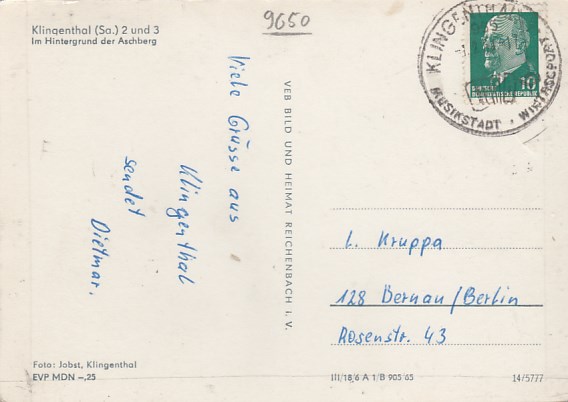 9650
Klingenthal (Sa.) 2 und 3
Im Hintergrund der Aschberg
Viele Grüsse aus
Klingenthal
sendet
Dietmar.
VEB BILD UND HEIMAT REICHENBACH I. V.
KLINGENTHAL
MUSIKSTADT · WINTERSPORT
10
DEUTSCHE
DEMOKRATISCHE REPUBLIK
L. Kruppa
128 Bernau/Berlin
Rosenstr. 43
Foto: Jobst, Klingenthal
EVP MDN –,25
III/18/6 A 1/B 905/65
14/5777